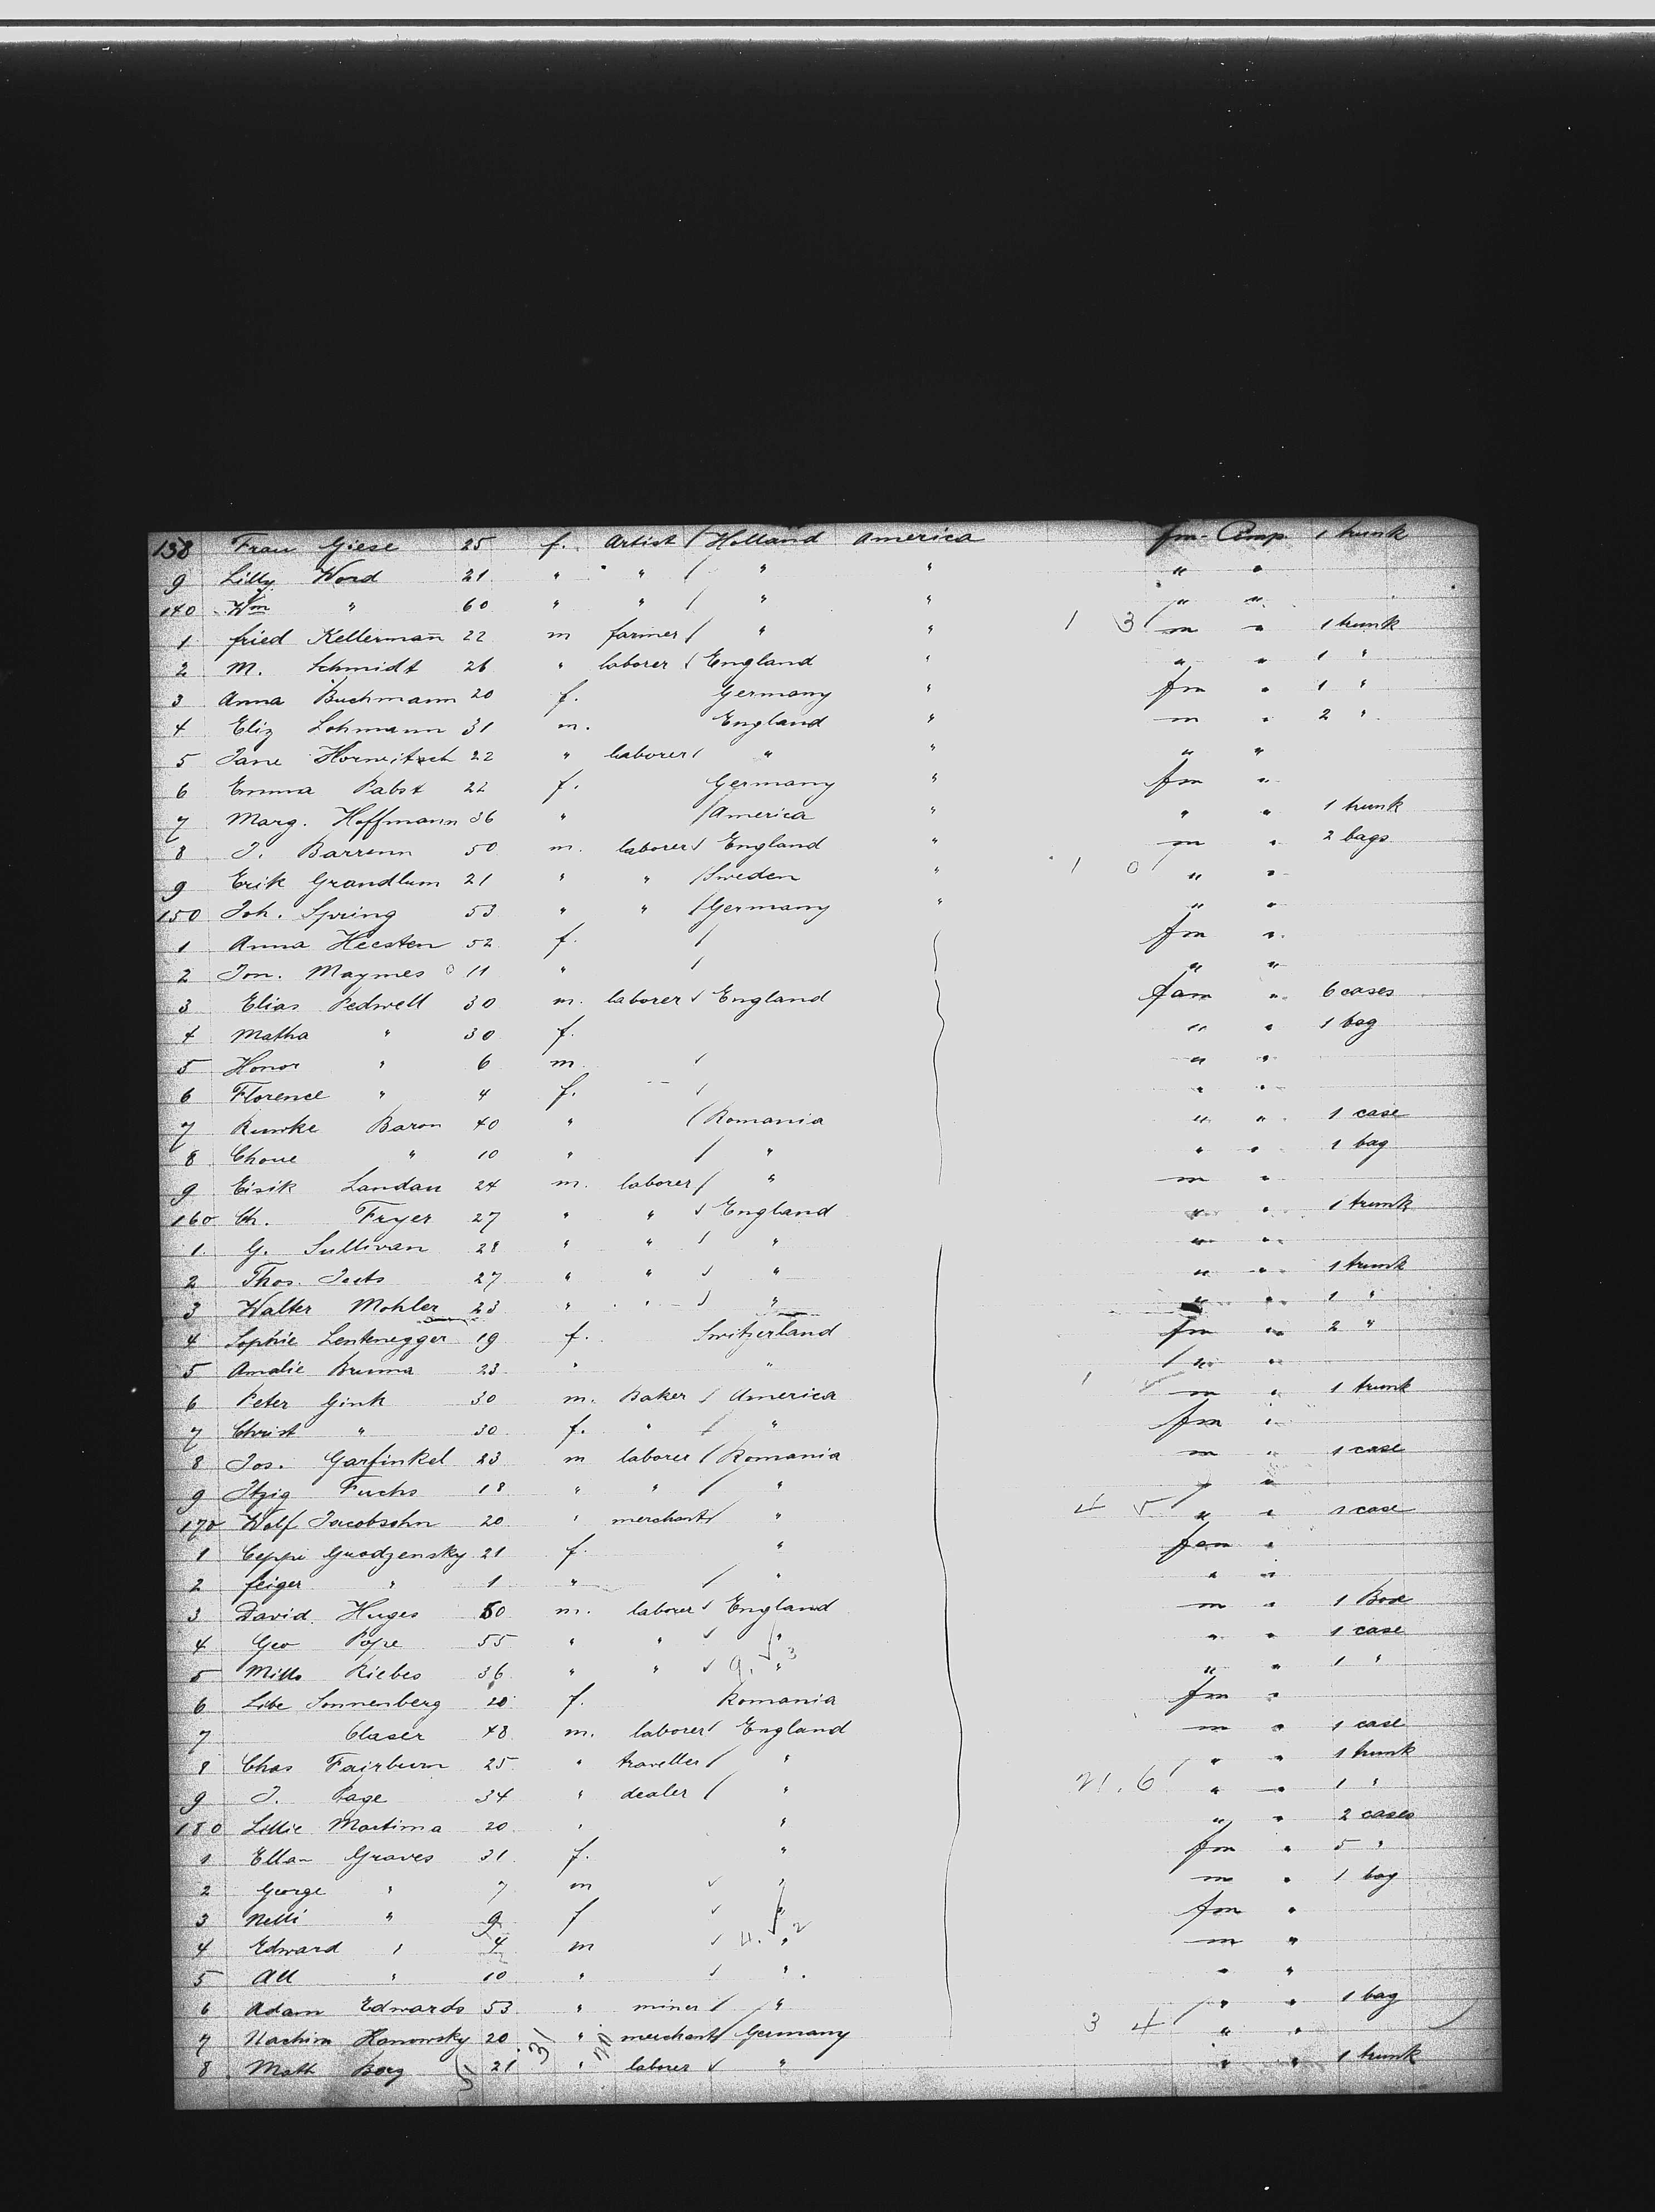 138 Frau Giese 25 f. Artist / Holland America fm Comp. 1 trunk
9 Lilly Word 21 " " / " " " "
140 Wm " 60 " " / " " " "
1 fried Kellermann 22 m farmer / " " 1 3 m " 1 trunk
2 M. Schmidt 26 " laborer England " " " 1 "
3 Anna Buchmann 20 f. Germany " fm " 1 "
4 Eliz Lohmann 31 m. England " m " 2 "
5 Jane 22 " laborer " " " "
6 Emma Pabst 22 f. Germany " fm "
7 Marg. Hoffmann 36 " / America " " " 1 trunk
8 J. 50 m. laborer England " m " 2 bags
9 Erik Grandlum 21 " " / Sweden " 1 0 " "
150 Joh. Spring 53 " " / Germany " " "
1 Anna 52 f. / fm "
2 Jon. Maymes 11 " / " "
3 Elias Pedwell 30 m. laborer England fam " 6 cases
4 Matha " 30 f. " " 1 bag
5 Honor " 6 m / " "
6 Florence " 4 f. / " "
7 Baron 40 " / Romania " " 1 case
8 " 10 " / " " " 1 bag
9 Eisik Landau 24 m. laborer / " m "
160 Ch. Fryer 27 " " England " " 1 trunk
1 G. Sullivan 28 " " / " " "
2 Thos. 27 " " " " " 1 trunk
3 Walter Mohler 23 " " " " " 1 "
4 Sophie Lentenegger 19 f. Switzerland fm " 2 "
5 Amalie Brunna 23 " " " "
6 Peter Gink 30 m. Baker / America 1 m " 1 trunk
7 Christ " 30 f. " / " fm "
8 Jos. Garfinkel 23 m laborer / Romania m " 1 case
9 Itzig Fuchs 18 " " / " " "
170 Wolf Jacobsohn 20 " merchant / " 4 5 " " 1 case
1 Ceppi Grodzensky 21 f. " fam "
2 feiger " 1 " / " " "
3 David Huges 50 m. laborer England m " 1 Box
4 Geo Pope 55 " " " " " 1 case
5 Mills Riebes 36 " " " " " 1 "
6 Libe Sonnenberg 20 f. Romania fm "
7 Claser 48 m. laborer England m " 1 case
8 Chas Fairburn 25 " traveller / " " " 1 trunk
9 J. Page 34 " dealer / " 21. 6 " " 1 "
180 Lillie Martima 20 " " " " 2 cases
1 Ella Graves 31 f. " fm " 5 "
2 George " 7 m " m " 1 bag
3 Nelli " 9 f " fm "
4 Edward " 4 m " m "
5 All " 10 " " " "
6 Adam Edwards 53 " miner / " " " 1 bag
7 Nachim Hanowsky 20 " merchant / Germany 3 4 " "
8 Math Borg 21 " laborer " " " 1 trunk